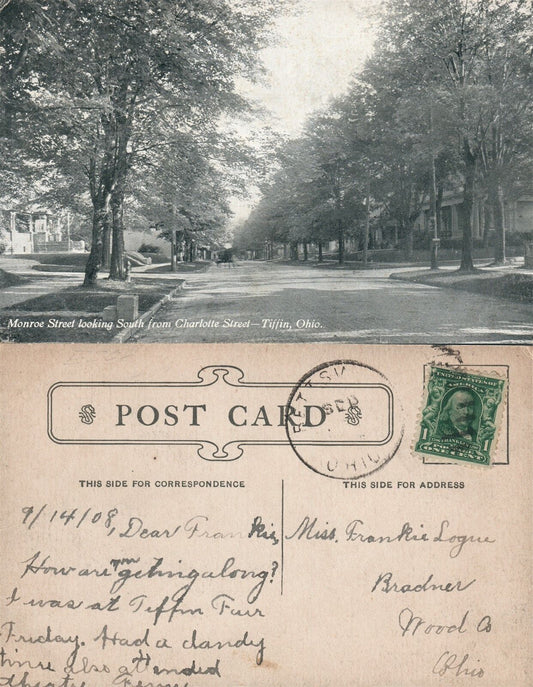 Monroe Street looking South from Charlotte Street—Tiffin, Ohio.
POST CARD
SEP
OHIO
UNITED STATES
FRANKLIN
1
THIS SIDE FOR CORRESPONDENCE
THIS SIDE FOR ADDRESS
9/14/08, Dear Frankie,
How are you getting along?
I was at Tiffin Fair
Friday. Had a dandy
time also attended
theatre
Miss. Frankie Logue
Bradner
Wood Co
Ohio